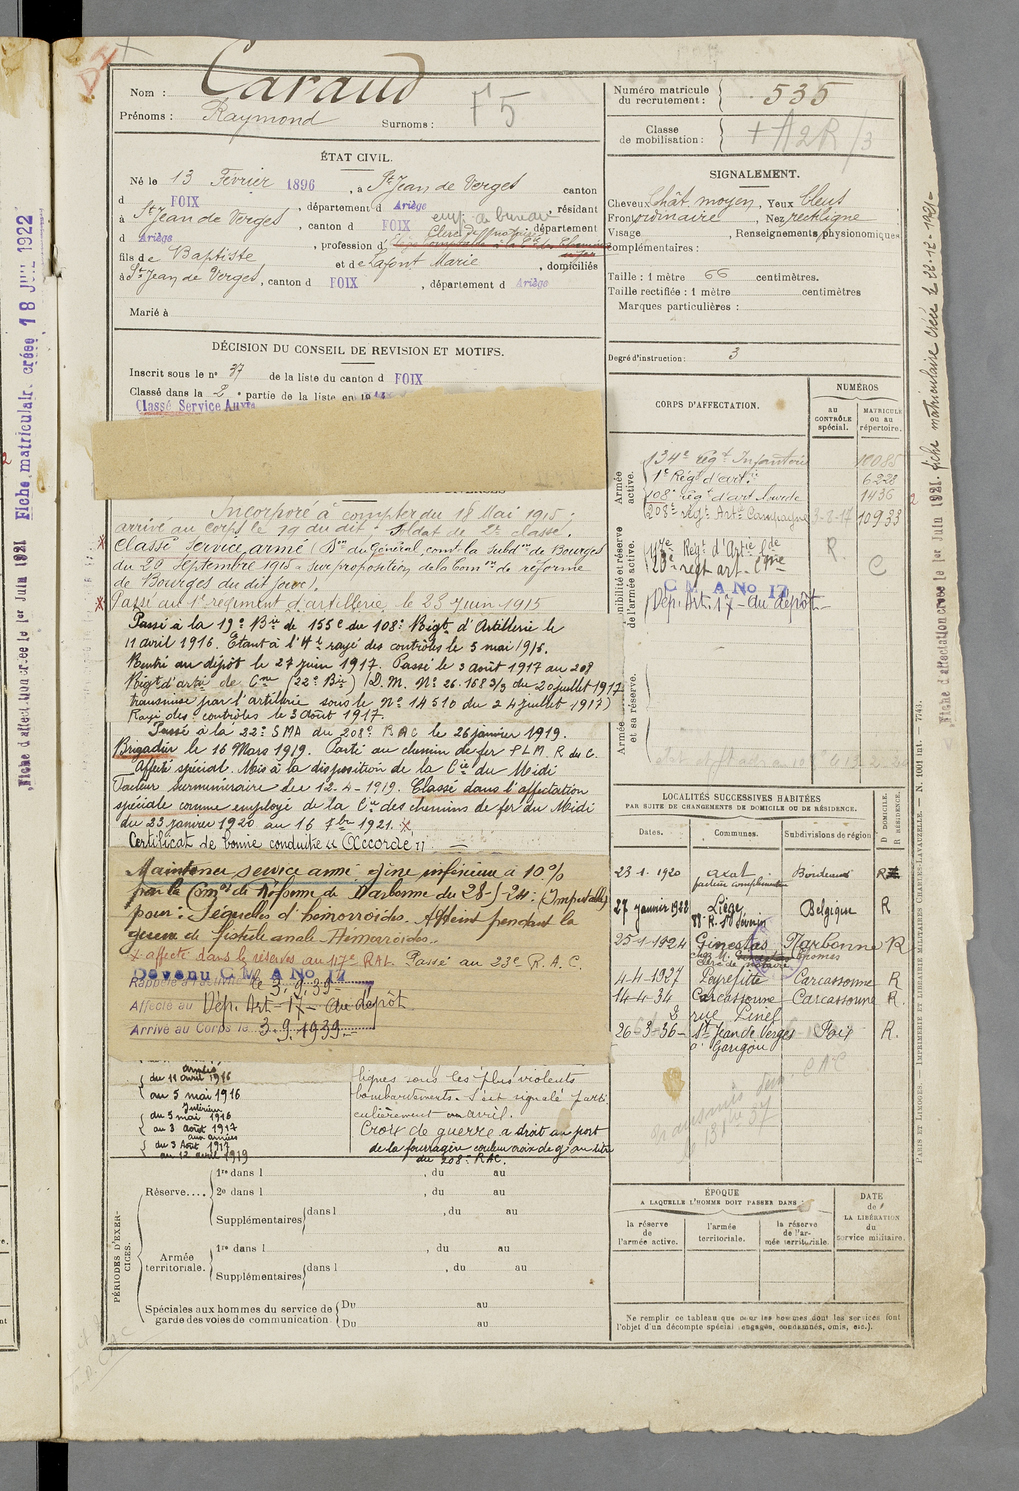 Nom : Caraud
Prénoms : Raymond Surnoms : F 5
ÉTAT CIVIL.
Né le 13 Février 1896, à St Jean de Verges canton
d FOIX, département d Ariège, résidant
à St Jean de Verges, canton d FOIX département
emp. de bureau
d Ariège, profession d
Clerc de notaire
fils de Baptiste et de Lafont Marie, domiciliés
à St Jean de Verges, canton d FOIX, département d Ariège
Marié à
DÉCISION DU CONSEIL DE REVISION ET MOTIFS.
Inscrit sous le no 37 de la liste du canton d FOIX
Classé dans la 2e partie de la liste en 19
Classé Service Auxre
Incorporé à compter du 18 Mai 1915 ;
arrivé au corps le 19 du dit. Soldat de 2e classe.
Classé Service armé (Don du Général comt la Subdon de Bourges
du 29 Septembre 1915 sur proposition de la Comon de réforme
de Bourges du dit jour).
Passé au 1er régiment d'artillerie le 23 Juin 1915
Passé à la 19e Bie de 155 C du 108e Régt d'Artillerie le
11 avril 1916. Étant à l'Ht rayé des contrôles le 5 mai 1916.
Rentré au dépôt le 27 juin 1917. Passé le 3 août 1917 au 208
Régt d'artie de Cne (22e Bie) (D.M. No 26.168 3/3 du 20 juillet 1917
transmise par l'artillerie sous le No 14510 du 24 juillet 1917)
Rayé des contrôles le 3 Août 1917.
Passé à la 22e SMA du 208e RAC le 26 janvier 1919.
Brigadier le 16 Mars 1919. Parti au chemin de fer P.L.M. R. du C.
Affecté spécial. Mis à la disposition de la Cie du Midi
Facteur surnuméraire du 12-4-1919. Classé dans l'affectation
spéciale comme employé de la Cie des chemins de fer du Midi
du 23 janvier 1920 au 16 7bre 1921.
Certificat de bonne conduite « Accordé »
Maintenu service armé. Gêne inférieure à 10%
par la Comon de Réforme de Narbonne du 28-5-24 : (Imputable)
pour : Séquelles d'hémorroïdes. Atteint pendant la
guerre de fistule anale. Hémorroïdes.
x affecté dans la réserve au 117e RAL. Passé au 23e R.A.C.
Devenu C M A No 17
Rappelé à l'activité le 3.9.39
Affecté au Dép. Art-17- au dépôt
Arrivé au Corps le 3.9.1939
armées
du 11 avril 1916
au 5 mai 1916
Intérieur
du 5 mai 1916
au 3 août 1917
aux armées
du 3 Août 1917
au 12 avril 1919
lignes sous les plus violents
bombardements. S'est signalé parti
culièrement en avril.
Croix de guerre a droit au port
de la fourragère couleur croix de g au titre
du 208e RAC.
PÉRIODES D'EXERCICES.
Réserve....
1re dans l , du au
2e dans l , du au
Supplémentaires dans l , du au
Armée territoriale.
1re dans l , du au
Supplémentaires dans l , du au
Spéciales aux hommes du service de garde des voies de communication.
Du au
Du au
Numéro matricule du recrutement : 535
Classe de mobilisation : + A2R/3
SIGNALEMENT.
Cheveux Chât. moyen, Yeux bleus
Front ordinaire, Nez rectiligne
Visage , Renseignements physionomiques
complémentaires :
Taille : 1 mètre 66 centimètres.
Taille rectifiée : 1 mètre centimètres
Marques particulières :
Degré d'instruction : 3
CORPS D'AFFECTATION.
NUMÉROS
AU CONTRÔLE spécial.
MATRICULE ou au répertoire.
Armée active.
134e régt Infanterie 10085
1er Régt d'artie 6228
108e régt d'art lourde 1436
208e Régt Artie Campagne 3-8-17 10933
Disponibilité et réserve de l'armée active.
117e Régt d'Artie Lde R.
23e régt art. Cgne C
C M A No 17
Dép. Art. 17 - au dépôt
Armée et sa réserve.
LOCALITÉS SUCCESSIVES HABITÉES
PAR SUITE DE CHANGEMENTS DE DOMICILE OU DE RÉSIDENCE.
Dates. Communes. Subdivisions de région D DOMICILE. R RÉSIDENCE.
23-1-1920 Axat Bordeaux R
27 janvier 1922 Liège Belgique R
25-1-1924 Ginestas Narbonne R
4-4-1927 Peyrefitte Carcassonne R
14-4-34 Carcassonne Carcassonne R.
2 rue Pinel
26-3-36 St Jean de Verges Foix R.
ÉPOQUE
A LAQUELLE L'HOMME DOIT PASSER DANS :
la réserve de l'armée active.
l'armée territoriale.
la réserve de l'armée territoriale.
DATE de LA LIBÉRATION du service militaire.
Ne remplir ce tableau que pour les hommes dont les services font
l'objet d'un décompte spécial (engagés, condamnés, omis, etc.).
PARIS ET LIMOGES. — IMPRIMERIE ET LIBRAIRIE MILITAIRES CHARLES-LAVAUZELLE. — N. 1001 int. — 7743.
Fiche d'affectation créée le 1er Juin 1921. Fiche matriculaire créée le 28-12-1921
Fiche d'affectation créée le 1er Juin 1921 Fiche matriculaire créée 18 JUIL 1922